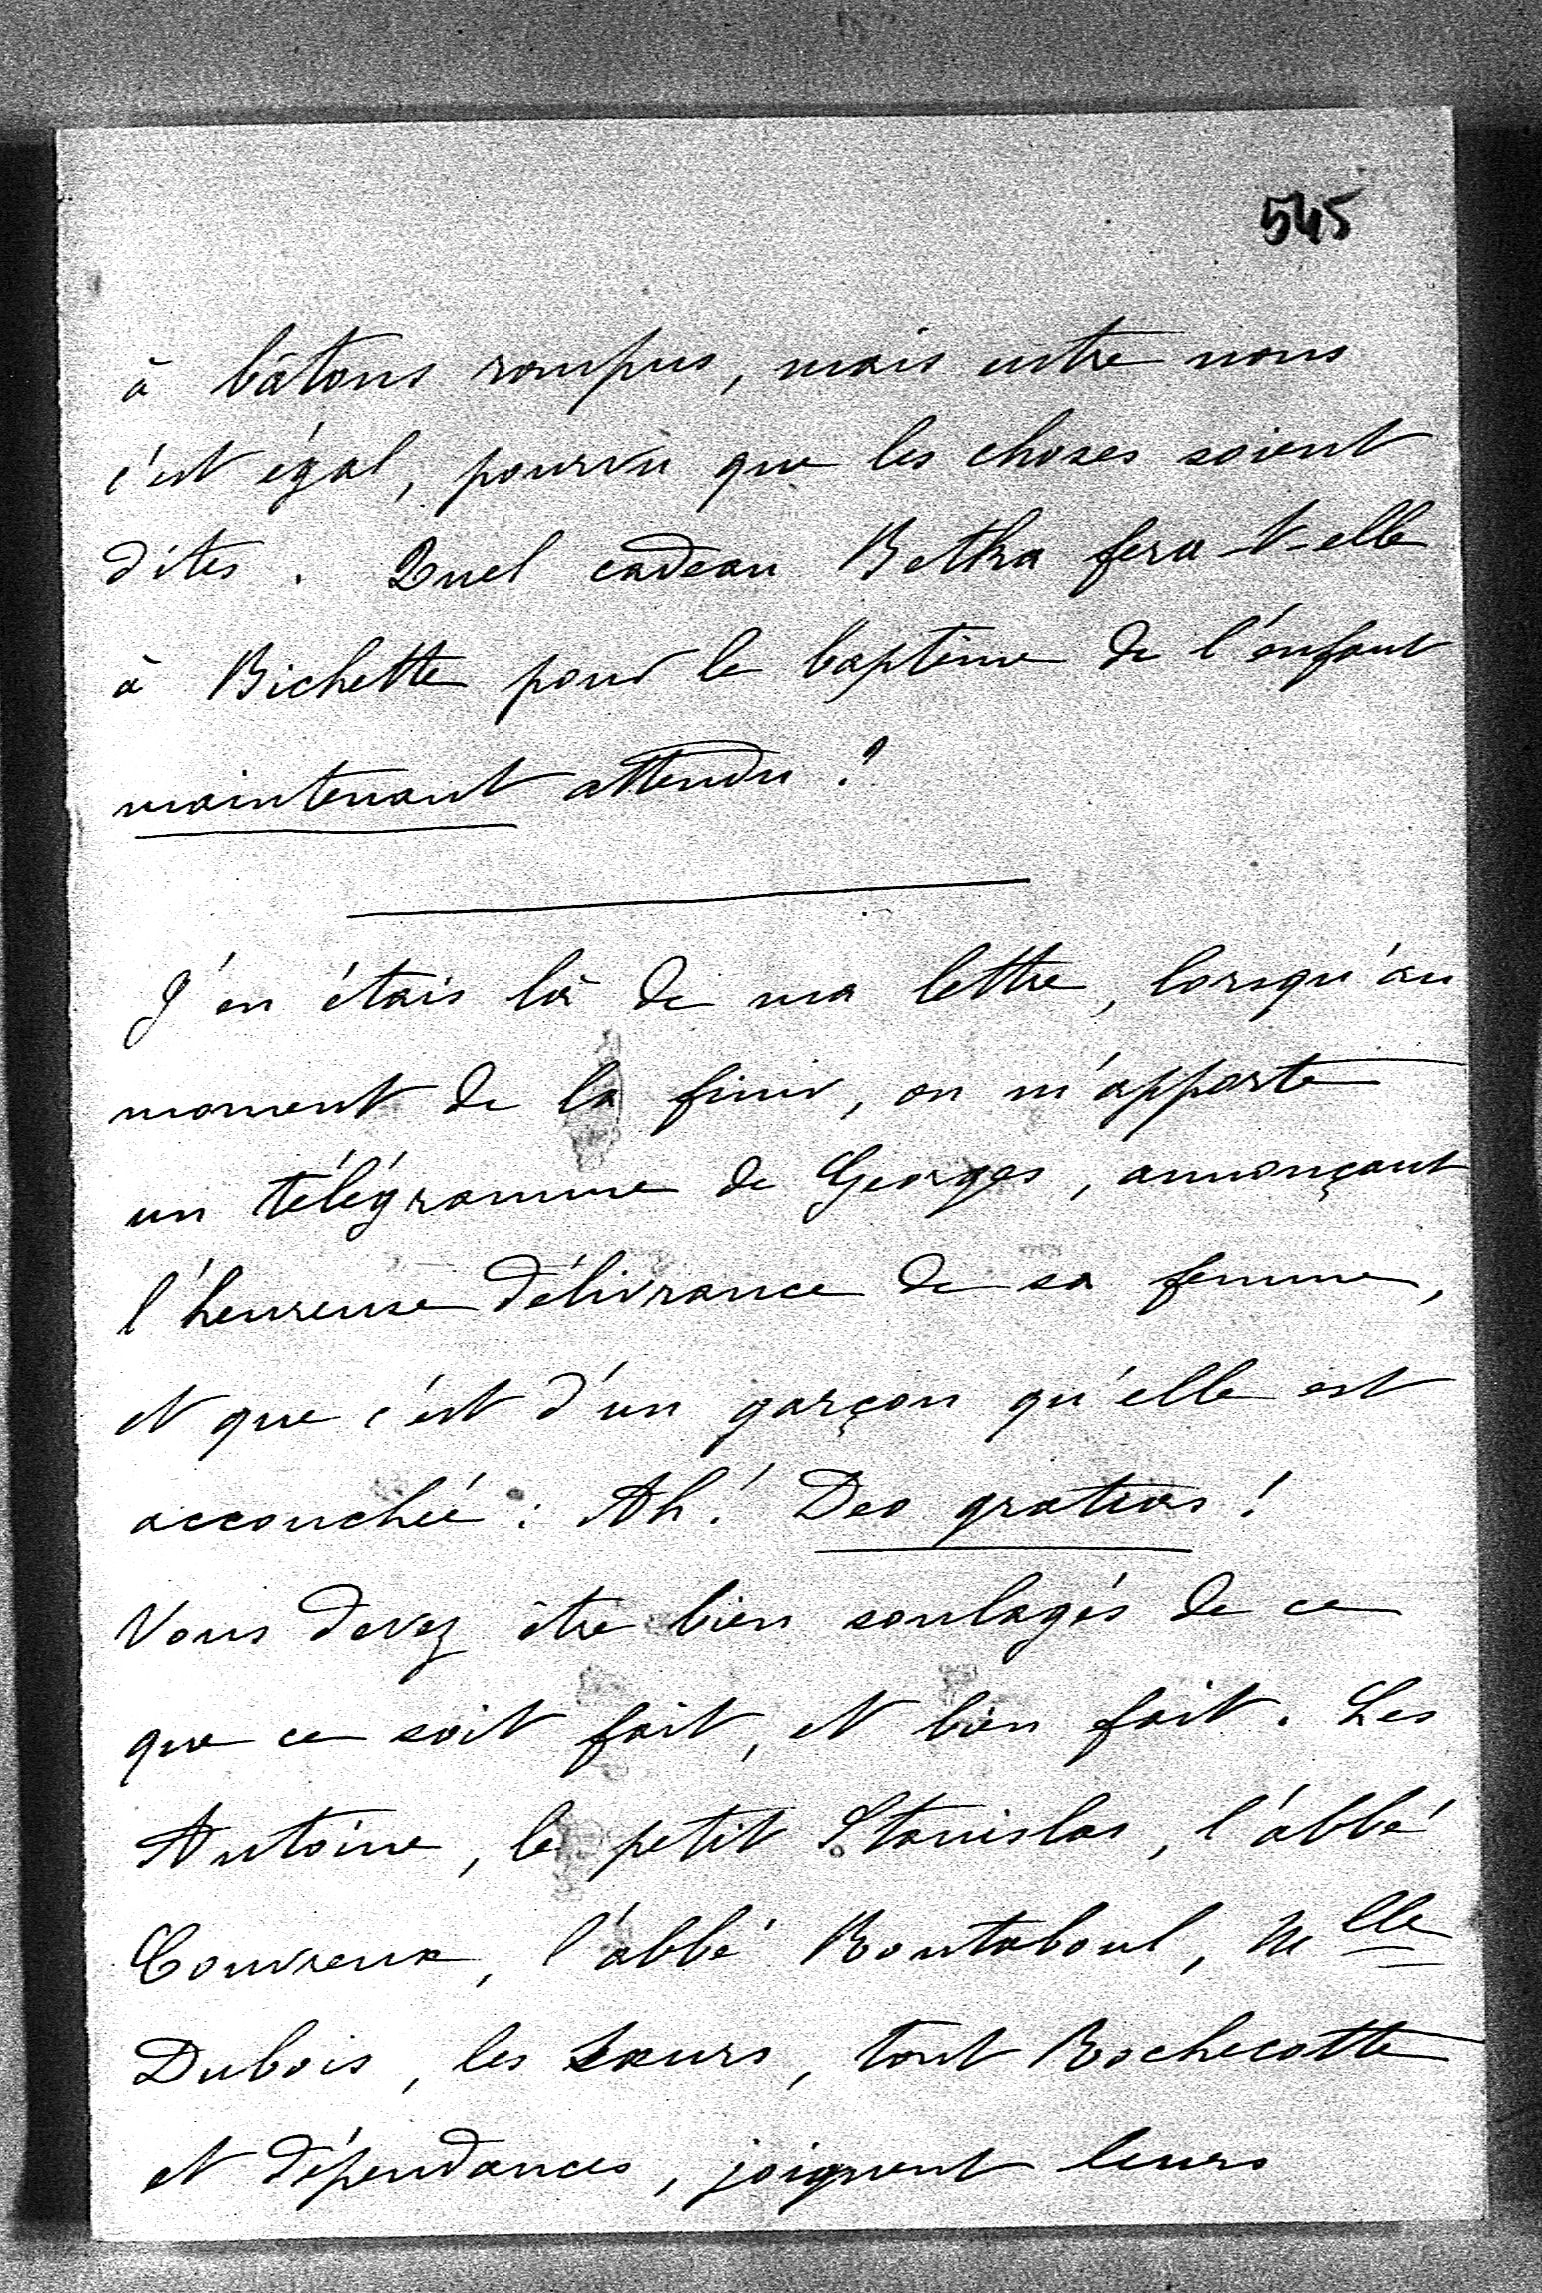 545
à bâtons rompus, mais entre nous
c'est égal, pourvu que les choses soient
dites. Quel cadeau Betka fera-t-elle
à Bichette pour le baptême de l'enfant
maintenant attendu ?
J'en étais là de ma lettre, lorsqu'au
moment de la finir, on m'apporte
un télégramme de Georges, annonçant
l'heureuse délivrance de sa femme,
et que c'est d'un garçon qu'elle est
accouchée : Ah ! Deo gratias !
Vous devez être bien soulagés de ce
que ce soit fait, et bien fait. Les
Antoine, le petit Stanislas, l'abbé
Couvreux, l'abbé Boutaboul, Mlle
Dubois, les Sœurs, tout Rochecotte
et dépendances, joignent leurs